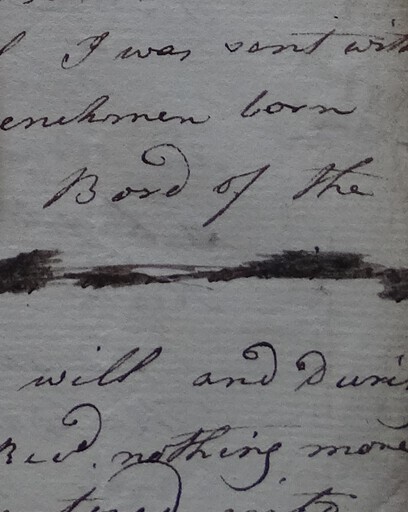 I was sent with
enchmen born
Bord of the
will and Durin
nothing more